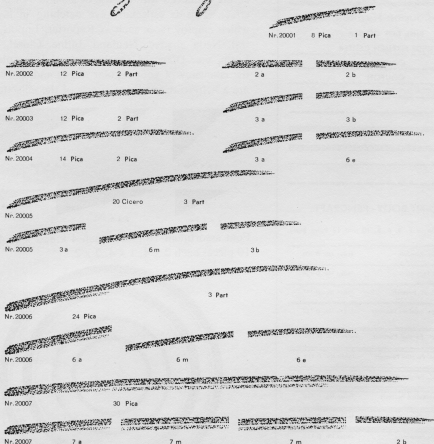 Nr.20001 8 Pica 1 Part
Nr.20002 12 Pica 2 Part 2a 2b
Nr.20003 12 Pica 2 Part 3a 3b
Nr.20004 14 Pica 2 Pica 3a 6e
20 Cicero 3 Part
Nr.20005
Nr.20005 3a 6m 3b
3 Part
Nr.20006 24 Pica
Nr.20006 6a 6m 6e
Nr.20007 30 Pica
Nr.20007 7a 7m 7m 2b